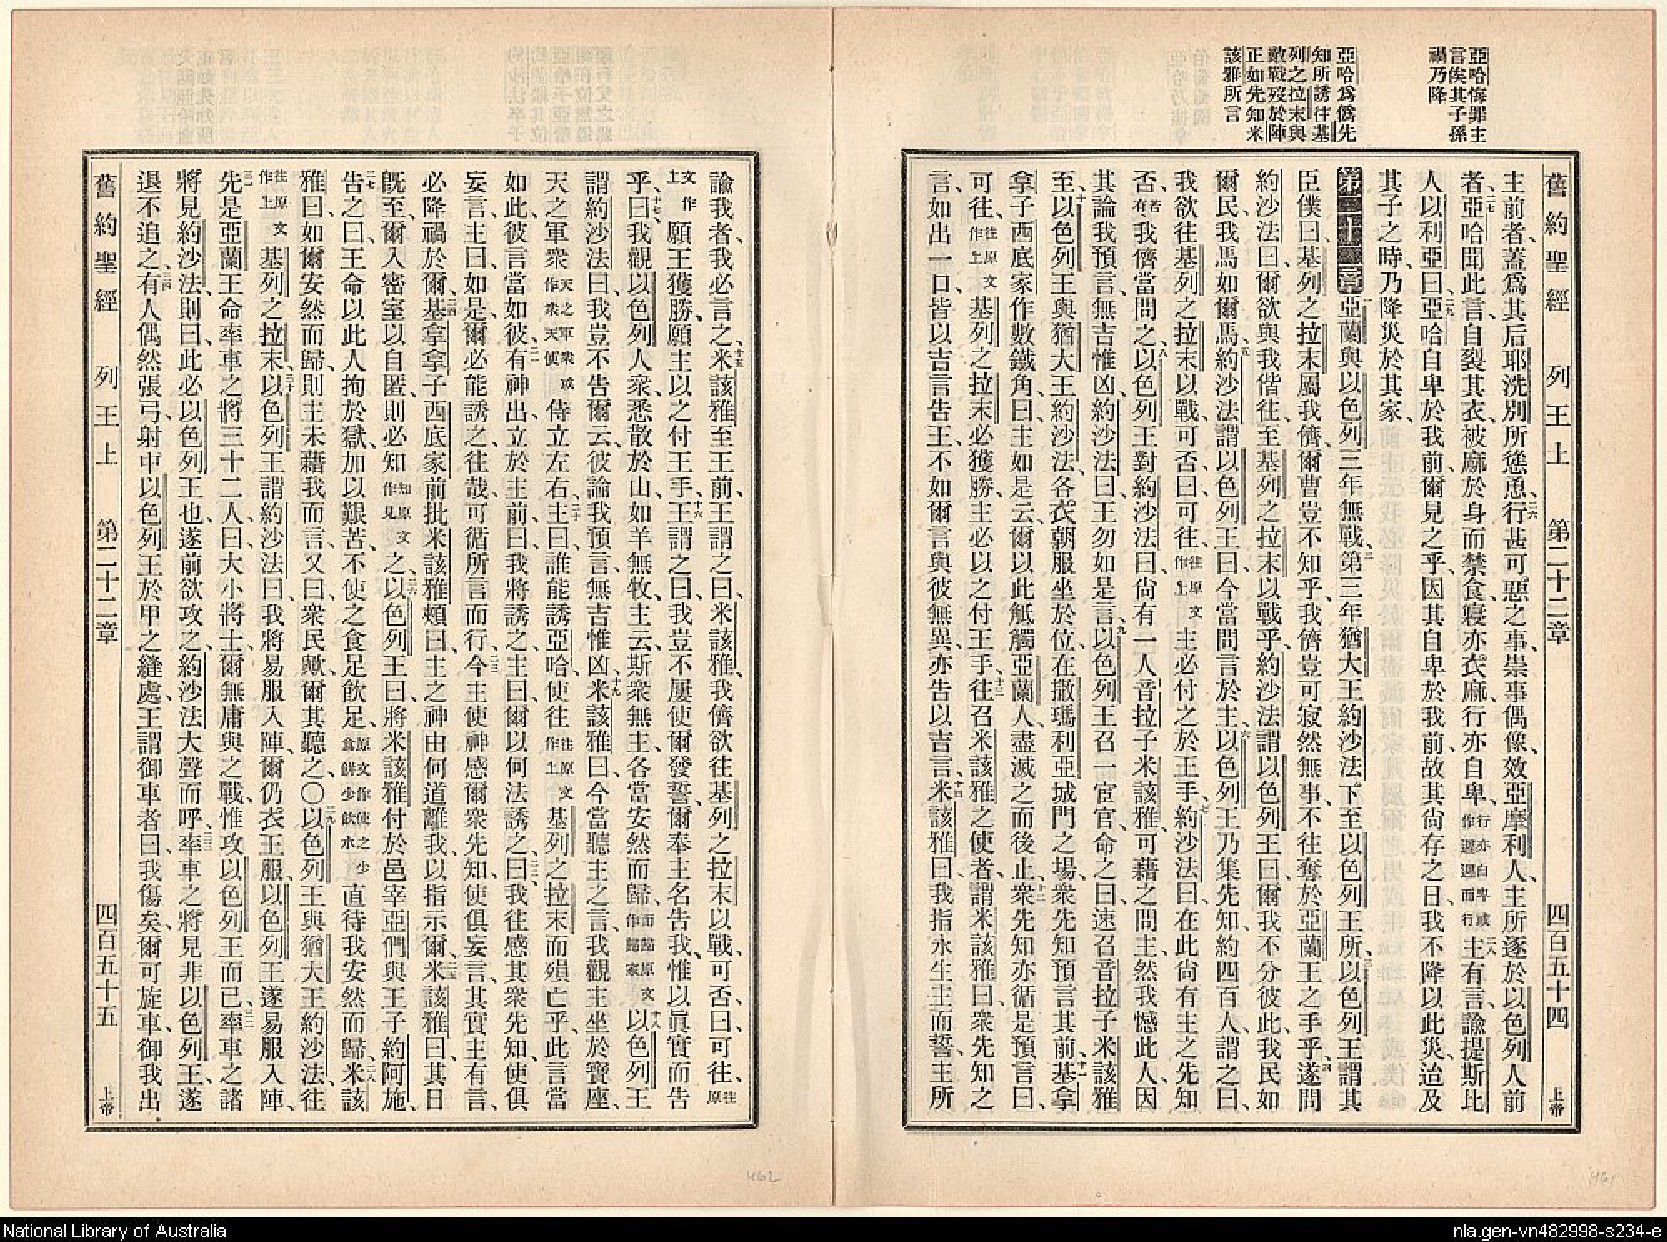 亞哈悔罪主
言俟其子孫
禍乃降
亞哈爲僞先
知所誘往基
列之拉末與
敵戰歿於陣
正如先知米
該雅所言
舊約聖經 列王上 第二十二章 四百五十四 上帝
主前者、蓋爲其后耶洗別所慫恿、二六行甚可惡之事、祟事偶像、效亞摩利人、主所逐於以色列人前
者、二七亞哈聞此言、自裂其衣、被麻於身而禁食、寢亦衣麻、行亦自卑、行亦自卑或作遲遲而行二八主有言諭提斯比
人以利亞曰、二九亞哈自卑於我前、爾見之乎、因其自卑於我前、故其尚存之日、我不降以此災、迨及
其子之時、乃降災於其家、
第二十二章一亞蘭與以色列三年無戰、二第三年猶大王約沙法下至以色列王所、三以色列王謂其
臣僕曰、基列之拉末屬我儕、爾曹豈不知乎、我儕豈可寂然無事、不往奪於亞蘭王之手乎、四遂問
約沙法曰、爾欲與我偕往至基列之拉末以戰乎、約沙法謂以色列王曰、爾我不分彼此、我民如
爾民、我馬如爾馬、五約沙法謂以色列王曰、今當問言於主、六以色列王乃集先知約四百人、謂之曰、
我欲往基列之拉末以戰、可否、曰、可往、往原文作上主必付之於王手、七約沙法曰、在此尚有主之先知
否、若有我儕當問之、八以色列王對約沙法曰、尚有一人、音拉子米該雅、可藉之問主、然我憾此人、因
其論我預言、無吉惟凶、約沙法曰、王勿如是言、九以色列王召一宦官、命之曰、速召音拉子米該雅
至、十以色列王與猶大王約沙法、各衣朝服、坐於位、在撒瑪利亞城門之場、衆先知預言其前、十一基拿
拿子西底家作數鐵角、曰、主如是云、爾以此觝觸亞蘭人、盡滅之而後止、十二衆先知亦循是預言曰、
可往、往原文作上基列之拉末、必獲勝、主必以之付王手、十三往召米該雅之使者、謂米該雅曰、衆先知之
言、如出一口、皆以吉言告王、不如爾言與彼無異、亦告以吉言、十四米該雅曰、我指永生主而誓、主所
諭我者、我必言之、十五米該雅至王前、王謂之曰、米該雅、我儕欲往基列之拉末以戰、可否、曰、可往、往原
文作上願王獲勝、願主以之付王手、十六王謂之曰、我豈不屢使爾發誓、爾奉主名告我、惟以眞實而告
乎、十七曰、我觀以色列人衆、悉散於山、如羊無牧、主云、斯衆無主、各當安然而歸、而歸原文作歸家十八以色列王
謂約沙法曰、我豈不告爾云、彼論我預言無吉惟凶、十九米該雅曰、今當聽主之言、我觀主坐於寶座、
天之軍衆天之軍衆或作衆天使侍立左右、二十主曰、誰能誘亞哈、使往往原文作上基列之拉末而殞亡乎、此言當
如此、彼言當如彼、二一有神出、立於主前曰、我將誘之、主曰、爾以何法誘之、二二曰、我往感其衆先知、使俱
妄言、主曰、如是、爾必能誘之、往哉、可循所言而行、二三今主使神感爾衆先知、使俱妄言、其實主有言
必降禍於爾、二四基拿拿子西底家前、批米該雅頰曰、主之神由何道離我以指示爾、二五米該雅曰、其日
旣至、爾入密室以自匿、則必知知原文作見之、二六以色列王曰、將米該雅付於邑宰亞們、與王子約阿施、
二七告之曰、王命以此人拘於獄、加以艱苦、不使之食足飲足、原文作使之少食餅少飲水直待我安然而歸、二八米該
雅曰、如爾安然而歸、則主未藉我而言、又曰、衆民歟、爾其聽之、〇二九以色列王與猶大王約沙法、往
往原文作上基列之拉末、三十以色列王謂約沙法曰、我將易服入陣、爾仍衣王服、以色列王遂易服入陣、
三一先是亞蘭王命率車之將三十二人曰、大小將士、爾無庸與之戰、惟攻以色列王而已、三二率車之諸
將見約沙法、則曰、此必以色列王也、遂前欲攻之、約沙法大聲而呼、三三率車之將見非以色列王、遂
退不追之、三四有人偶然張弓、射中以色列王於甲之縫處、王謂御車者曰、我傷矣、爾可旋車、御我出
舊約聖經 列王上 第二十二章 四百五十五 上帝
462
461
National Library of Australia
nla.gen-vn482998-s234-e